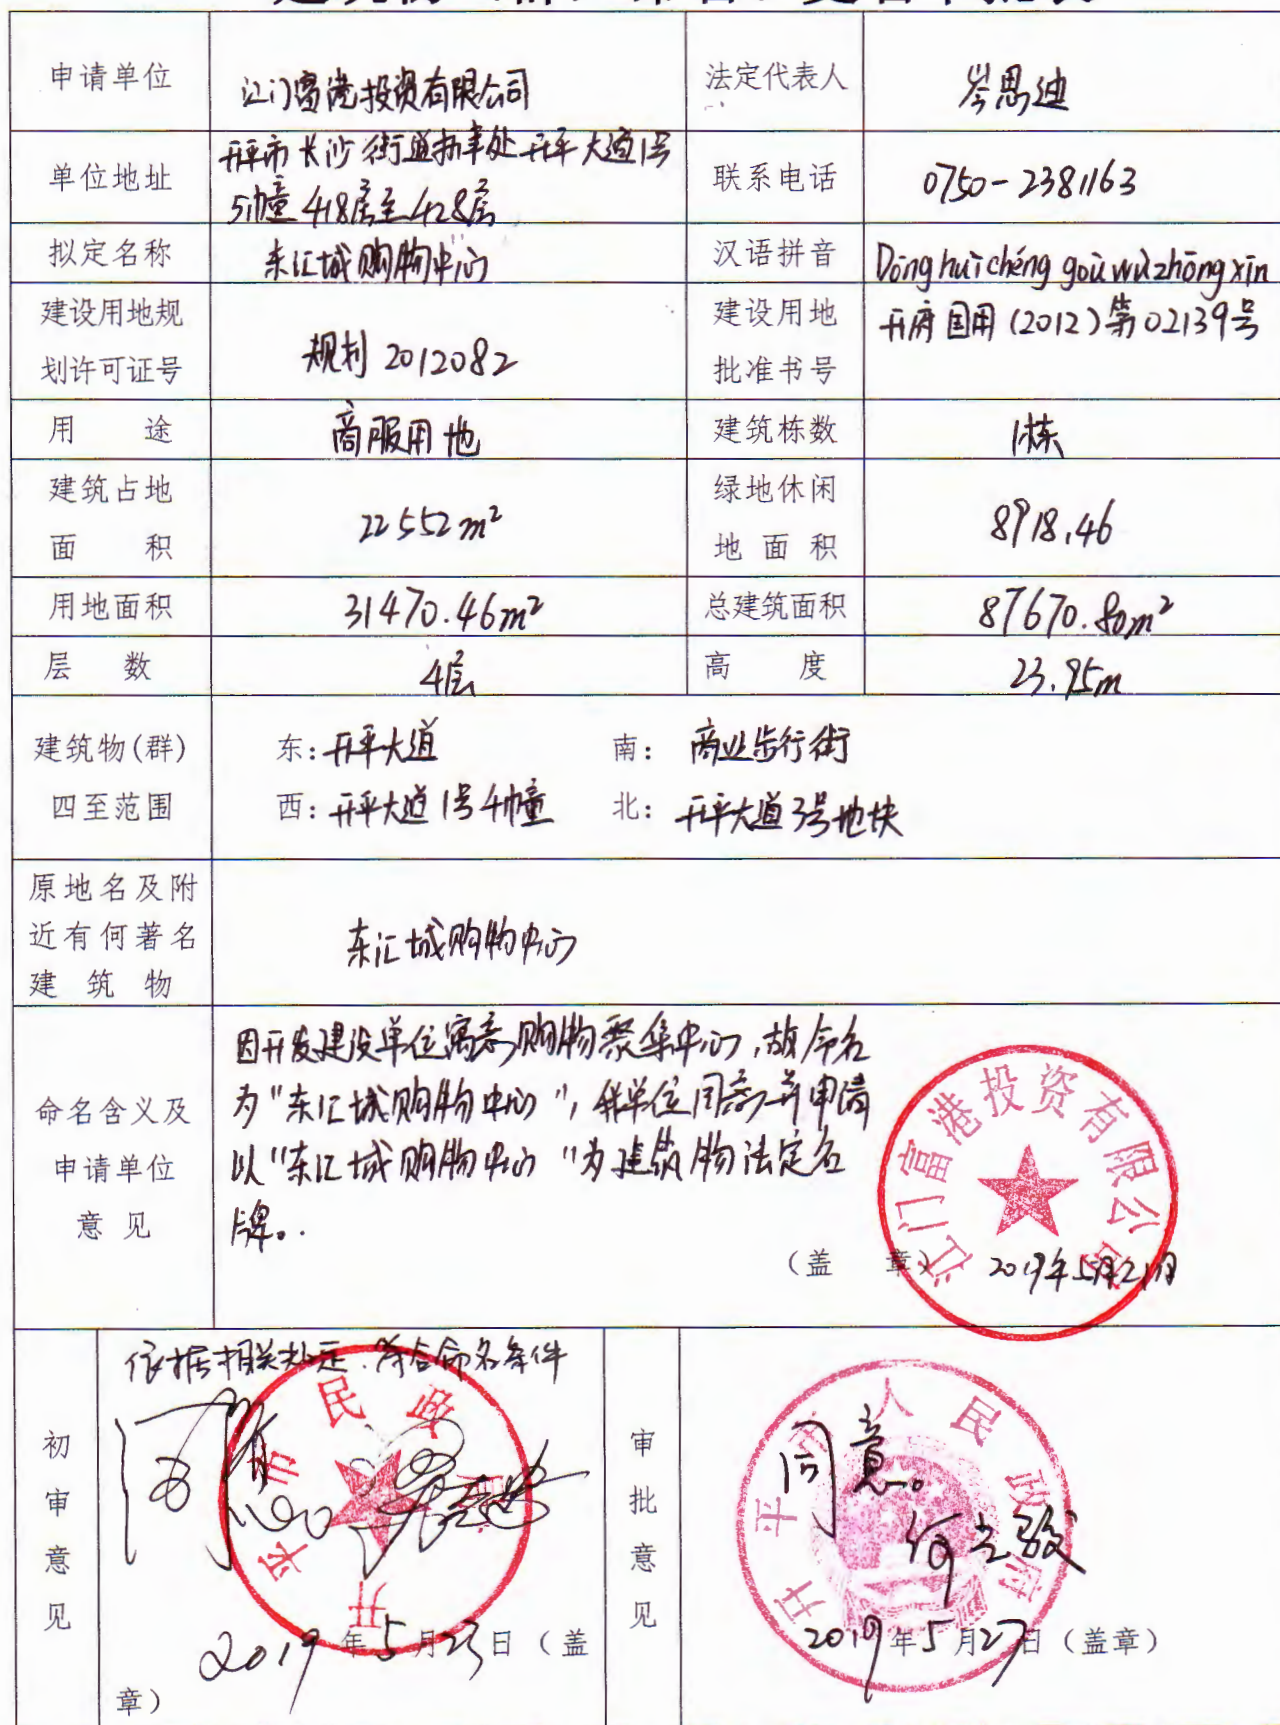 申请单位 江门富港投资有限公司 法定代表人 岑思迪
单位地址 开平市长沙街道办事处开平大道1号
5幢418层至428层 联系电话 0750-2381163
拟定名称 东汇城购物中心 汉语拼音 Dōng huì chéng gòu wù zhōng xīn
建设用地规
划许可证号 规划2012082 建设用地
批准书号 开府国用(2012)第02139号
用 途 商服用地 建筑栋数 1栋
建筑占地
面 积 22552m² 绿地休闲
地面积 8918.46
用地面积 31470.46m² 总建筑面积 87670.80m²
层 数 4层 高 度 23.95m
建筑物(群)
四至范围 东:开平大道 南: 商业步行街
西:开平大道1号4幢 北: 开平大道3号地块
原地名及附
近有何著名
建筑物 东汇城购物中心
命名含义及
申请单位
意见
因开发建设单位寓意购物聚集中心,故命名
为"东汇城购物中心",我单位同意并申请
以"东汇城购物中心"为建筑物法定名
牌。
(盖 章) 2019年5月21日
江门富港投资有限公司
初审意见
依据相关规定,符合命名条件
开平市民政局
2019年5月23日(盖
章)
审批意见
同意。
开平市人民政府
2019年5月27日(盖章)